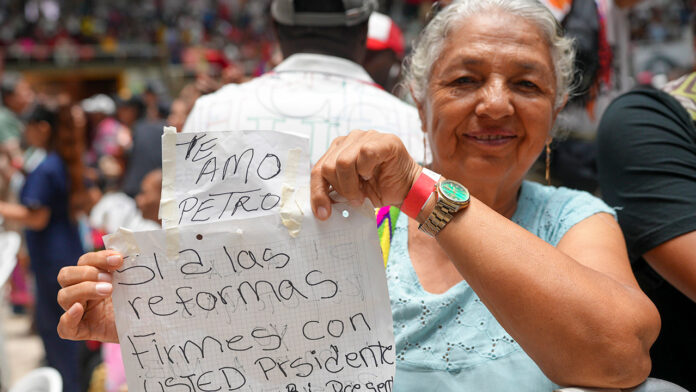 TE
AMO
PETRO
SI a las
reformas
Firmes con
USTED Prsidente